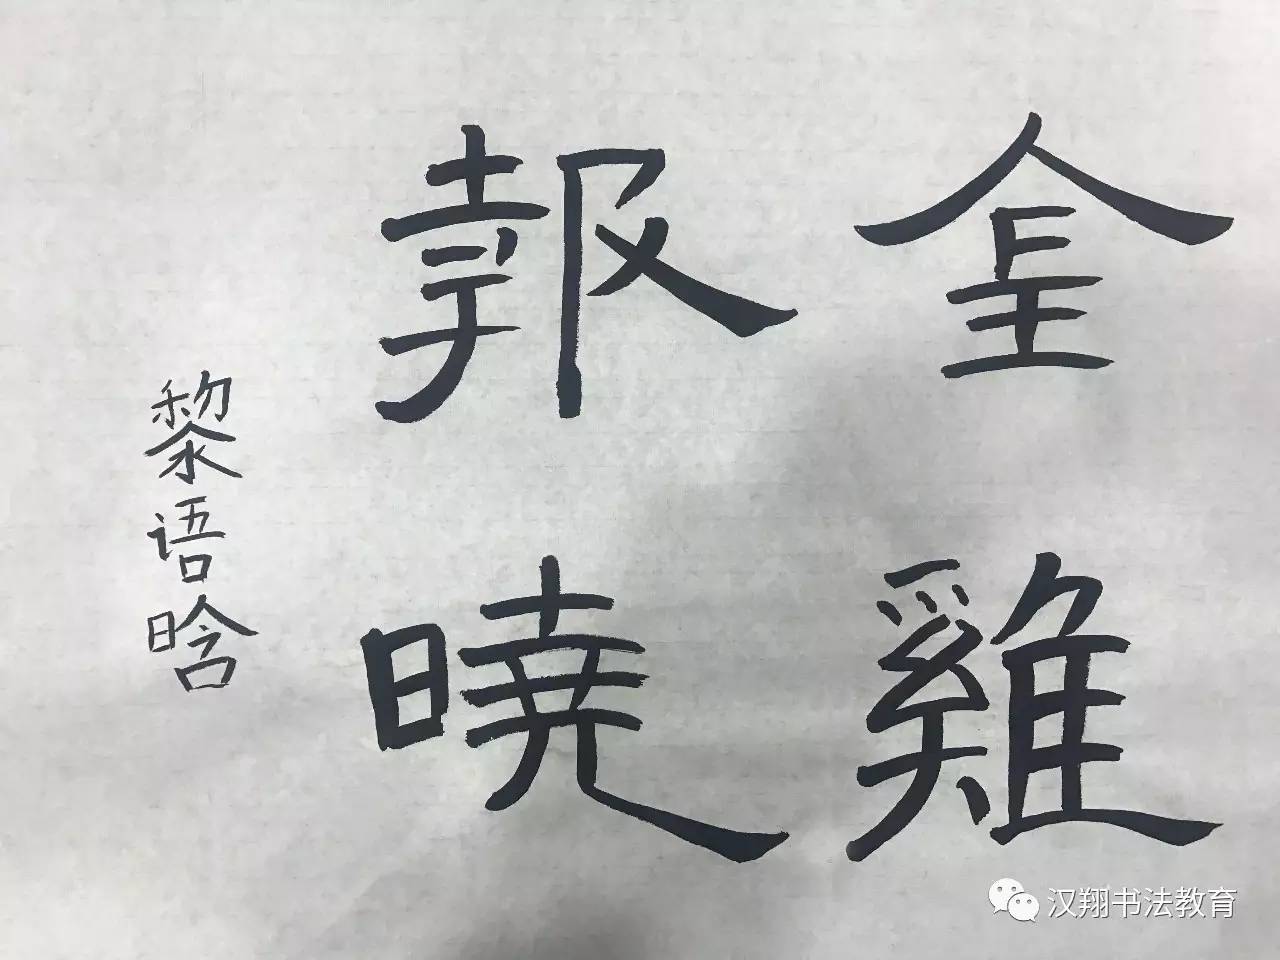 金雞
報曉
黎语晗
汉翔书法教育